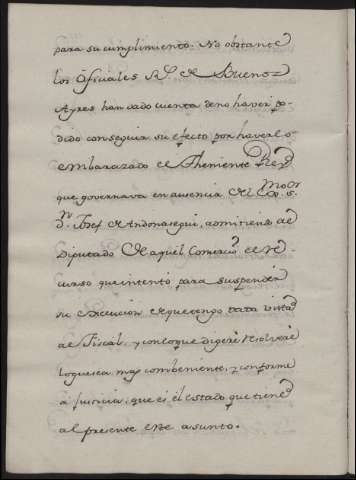 para su cumplimiento. No obstante
los Oficiales Rs. de Buenos
Ayres han dado cuenta de no haver po-
dido conseguir su efecto por haverlo
embarazado el Theniente Rey
que governava en ausencia del Govor.
Dn. Josef de Andonaegui, admitiendo al
Diputado de aquel Comercio el re-
curso que intentó para suspender
su execucion de que tengo dada vista
al Fiscal, y con lo que digere resolverè
lo que sea mas combeniente, y conforme
à justicia, que es el estado que tiene
al presente este asunto.